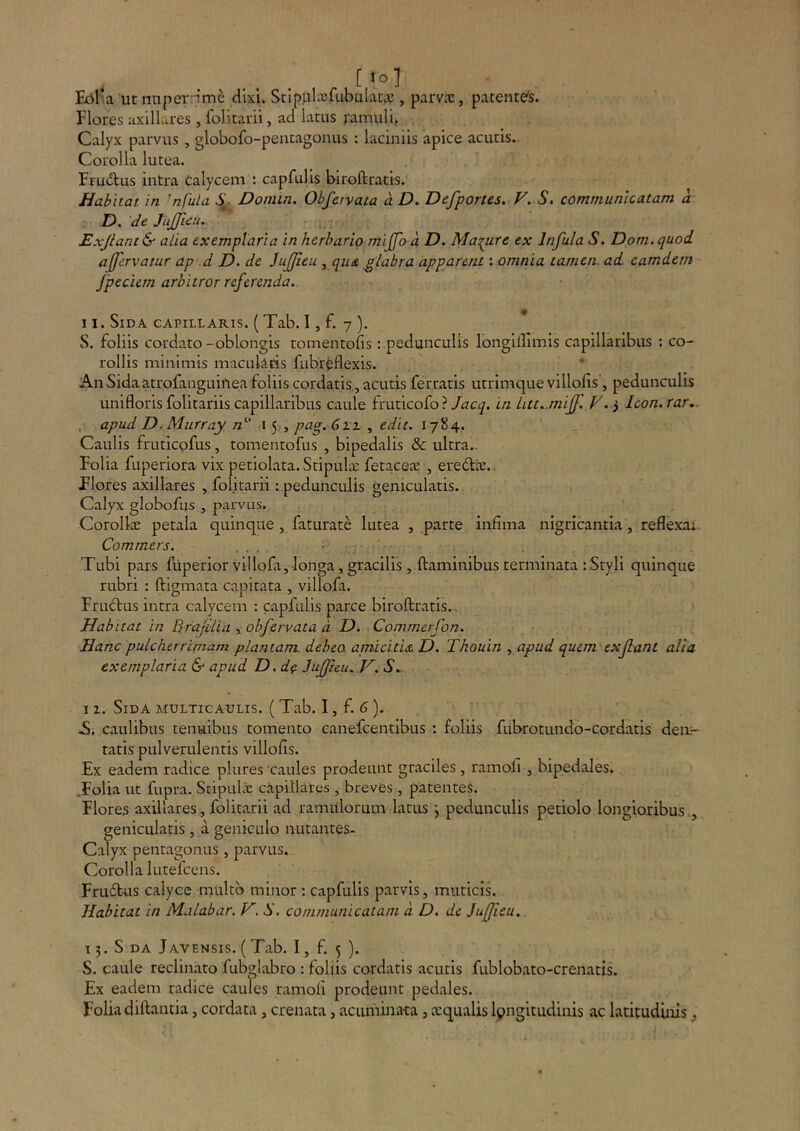 [ 10 ]
Folia ut nuperrime dixi. Stipulæ subulatæ, parvæ, patentes.
Flores axillares, ſolitarii, ad latus ramuli.
Calyx parvus, globoſo-pentagonus : laciniis apice acutis.
Corolla lutea.
Fructus intra calycem : capſulis biroſtratis.
Habitat in Inſula S. Domin. Obſervata à D. Deſportes. V. S. communicatam à
D. de Juſſieu.
Exſtant & alia exemplaria in herbario miſſo à D. Mazure ex Inſula S. Dom. quod
aſſervatur apud D. de Juſſieu, quæ glabra apparent : omnia tamen ad eamdem
ſpeciem arbitror referenda.
11. SIDA CAPILLARIS. ( Tab. I, f. 7 ).
S. foliis cordato-oblongis tomentoſis : pedunculis longiſſimis capillaribus : co-
rollis minimis maculatis ſubreflexis.
An Sida atroſanguinea foliis cordatis, acutis ſerratis utrimque villoſis, pedunculis
unifloris ſolitariis capillaribus caule fruticoſo ? Jacq. in litt. miſſ. V. 3 Icon. rar.
apud D. Murray nº 15, pag. 622, edit. 1784.
Caulis fruticoſus, tomentoſus, bipedalis & ultra.
Folia ſuperiora vix petiolata. Stipulæ ſetaceæ, erectæ.
Flores axillares, ſolitarii : pedunculis geniculatis.
Calyx globoſus, parvus.
Corollæ petala quinque, ſaturatè lutea, parte infima nigricantia, reflexa.
Commers.
Tubi pars ſuperior villoſa, longa, gracilis, ſtaminibus terminata : Styli quinque
rubri : ſtigmata capitata, villoſa.
Fructus intra calycem : capſulis parce biroſtratis.
Habitat in Braſilia, obſervata à D. Commerſon.
Hanc pulcherrimam plantam debeo amicitiæ D. Thouin, apud quem exſtant alia
exemplaria & apud D. de Juſſieu. V. S.
12. SIDA MULTICAULIS. ( Tab. I, f. 6 ).
S. caulibus tenuibus tomento caneſcentibus : foliis ſubrotundo-cordatis den-
tatis pulverulentis villoſis.
Ex eadem radice plures caules prodeunt graciles, ramoſi, bipedales.
Folia ut ſupra. Stipulæ capillares, breves, patentes.
Flores axillares, ſolitarii ad ramulorum latus ; pedunculis petiolo longioribus,
geniculatis, à geniculo nutantes.
Calyx pentagonus, parvus.
Corolla luteſcens.
Fructus calyce multò minor : capſulis parvis, muticis.
Habitat in Malabar. V. S. communicatam à D. de Juſſieu.
13. SIDA JAVENSIS. ( Tab. I, f. 5 ).
S. caule reclinato ſubglabro : foliis cordatis acutis ſublobato-crenatis.
Ex eadem radice caules ramoſi prodeunt pedales.
Folia diſtantia, cordata, crenata, acuminata, æqualis longitudinis ac latitudinis,